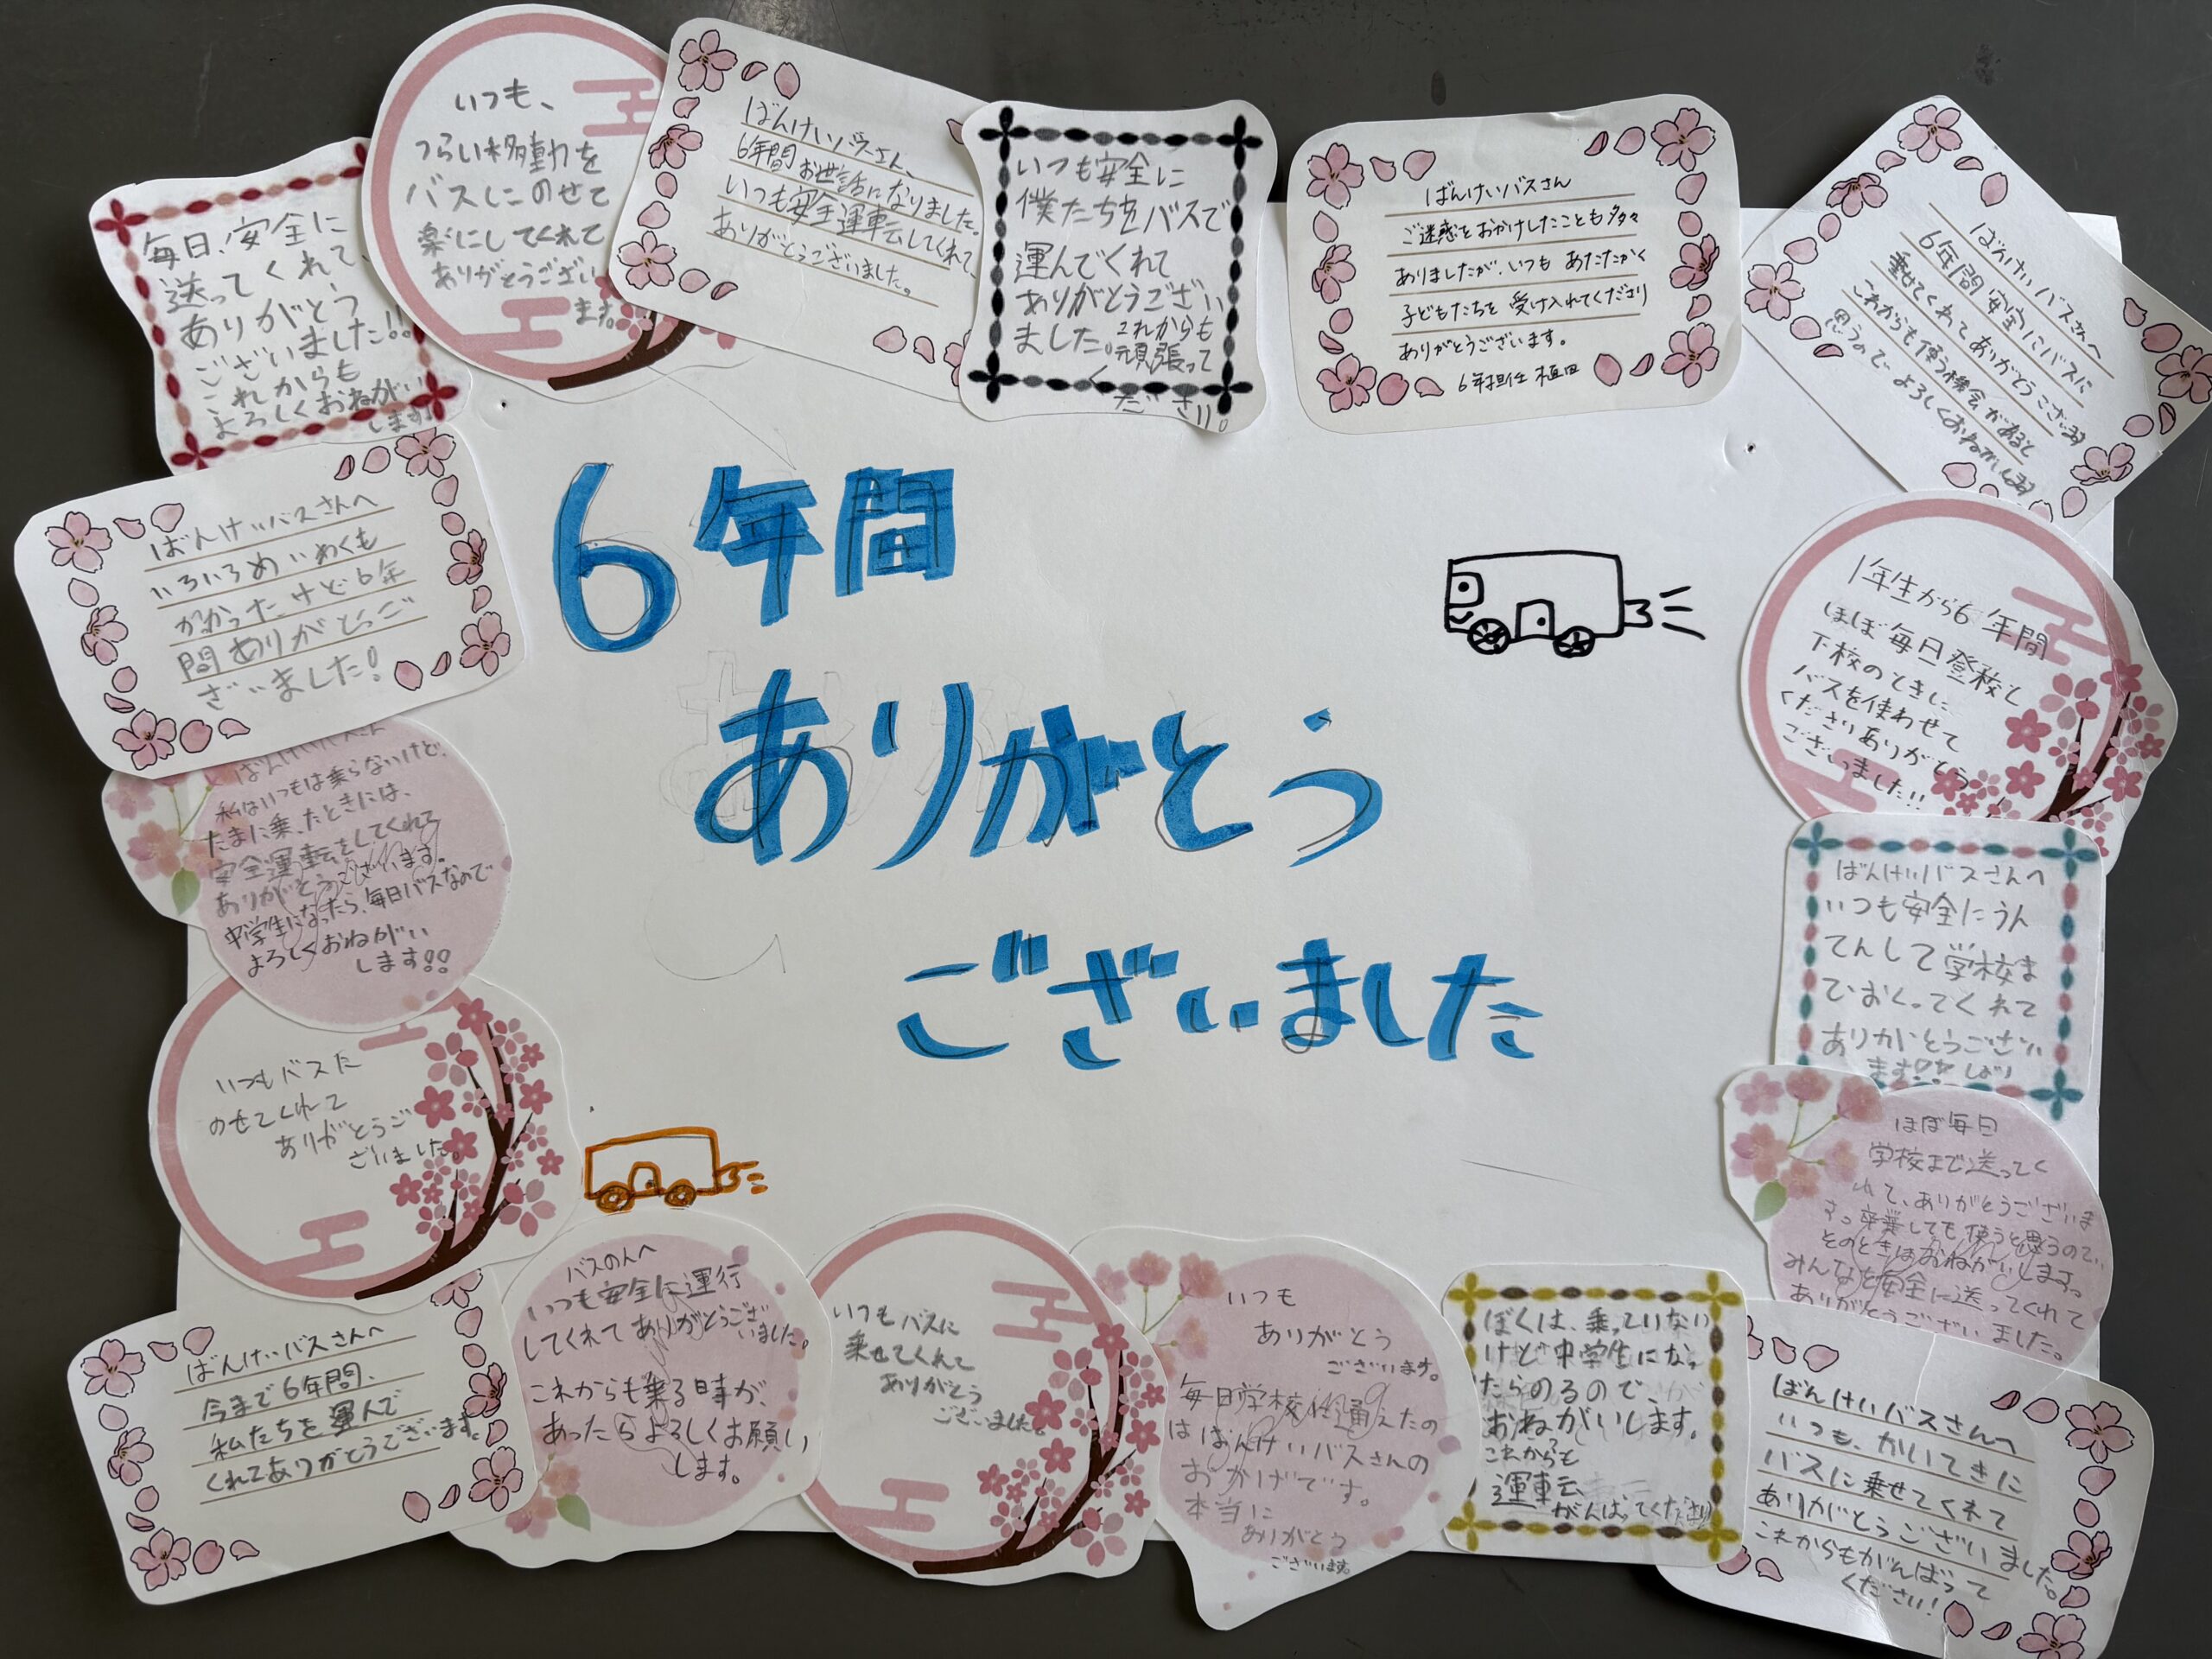 6年間
ありがとう
ございました
毎日、安全に
送ってくれて
ありがとう
ございました!!
これからも
よろしくおねがい
します!
いつも、
つらい移動を
バスにのせて
楽にしてくれて
ありがとうござい
ます。
ばんけいバスさん、
6年間お世話になりました。
いつも安全運転してくれて、
ありがとうございました。
いつも安全に
僕たちをバスで
運んでくれて
ありがとうござい
ました。これからも
頑張って
ください。
ばんけいバスさん
ご迷惑をおかけしたことも多々
ありましたが、いつも あたたかく
子どもたちを 受け入れてくださり
ありがとうございます。
6年担任 植田
ばんけいバスさんへ
6年間安全にバスに
乗せてくれてありがとうございます
これからも使う機会があると
思うのでよろしくおねがいします
1年生から6年間
ほぼ毎日登校と
下校のときに
バスを使わせて
くださりありがとう
ございました!!
ばんけいバスさんへ
いつも安全にうん
てんして学校ま
でおくってくれて
ありがとうござい
ます!!
ほぼ毎日
学校まで送ってく
れて、ありがとうございま
す。卒業しても使うと思うので、
そのときはおねがいします。
みんなを安全に送ってくれて
ありがとうございました。
ばんけいバスさんへ
いつも、かいてきに
バスに乗せてくれて
ありがとうございました。
これからもがんばって
ください!
ぼくは、乗っていない
けど中学生になっ
たらのるので、
おねがいします。
これからも
運転
がんばってください
いつも
ありがとう
ございます。
毎日学校に通えたの
はばんけいバスさんの
おかげです。
本当に
ありがとう
ございます。
いつもバスに
乗せてくれて
ありがとう
ございました。
バスの人へ
いつも安全に運行
してくれてありがとうござ
いました。
これからも乗る時が、
あったらよろしくお願い
します。
ばんけいバスさんへ
今まで6年間、
私たちを運んで
くれてありがとうございます。
いつもバスに
のせてくれて
ありがとうご
ざいました。
ばんけいバスさん
私はいつもは乗らないけど、
たまに乗ったときには、
安全運転をしてくれて
ありがとうございます。
中学生になったら、毎日バスなので
よろしくおねがい
します!!
ばんけいバスさんへ
いろいろめいわくも
かかったけど6年
間ありがとうご
ざいました!